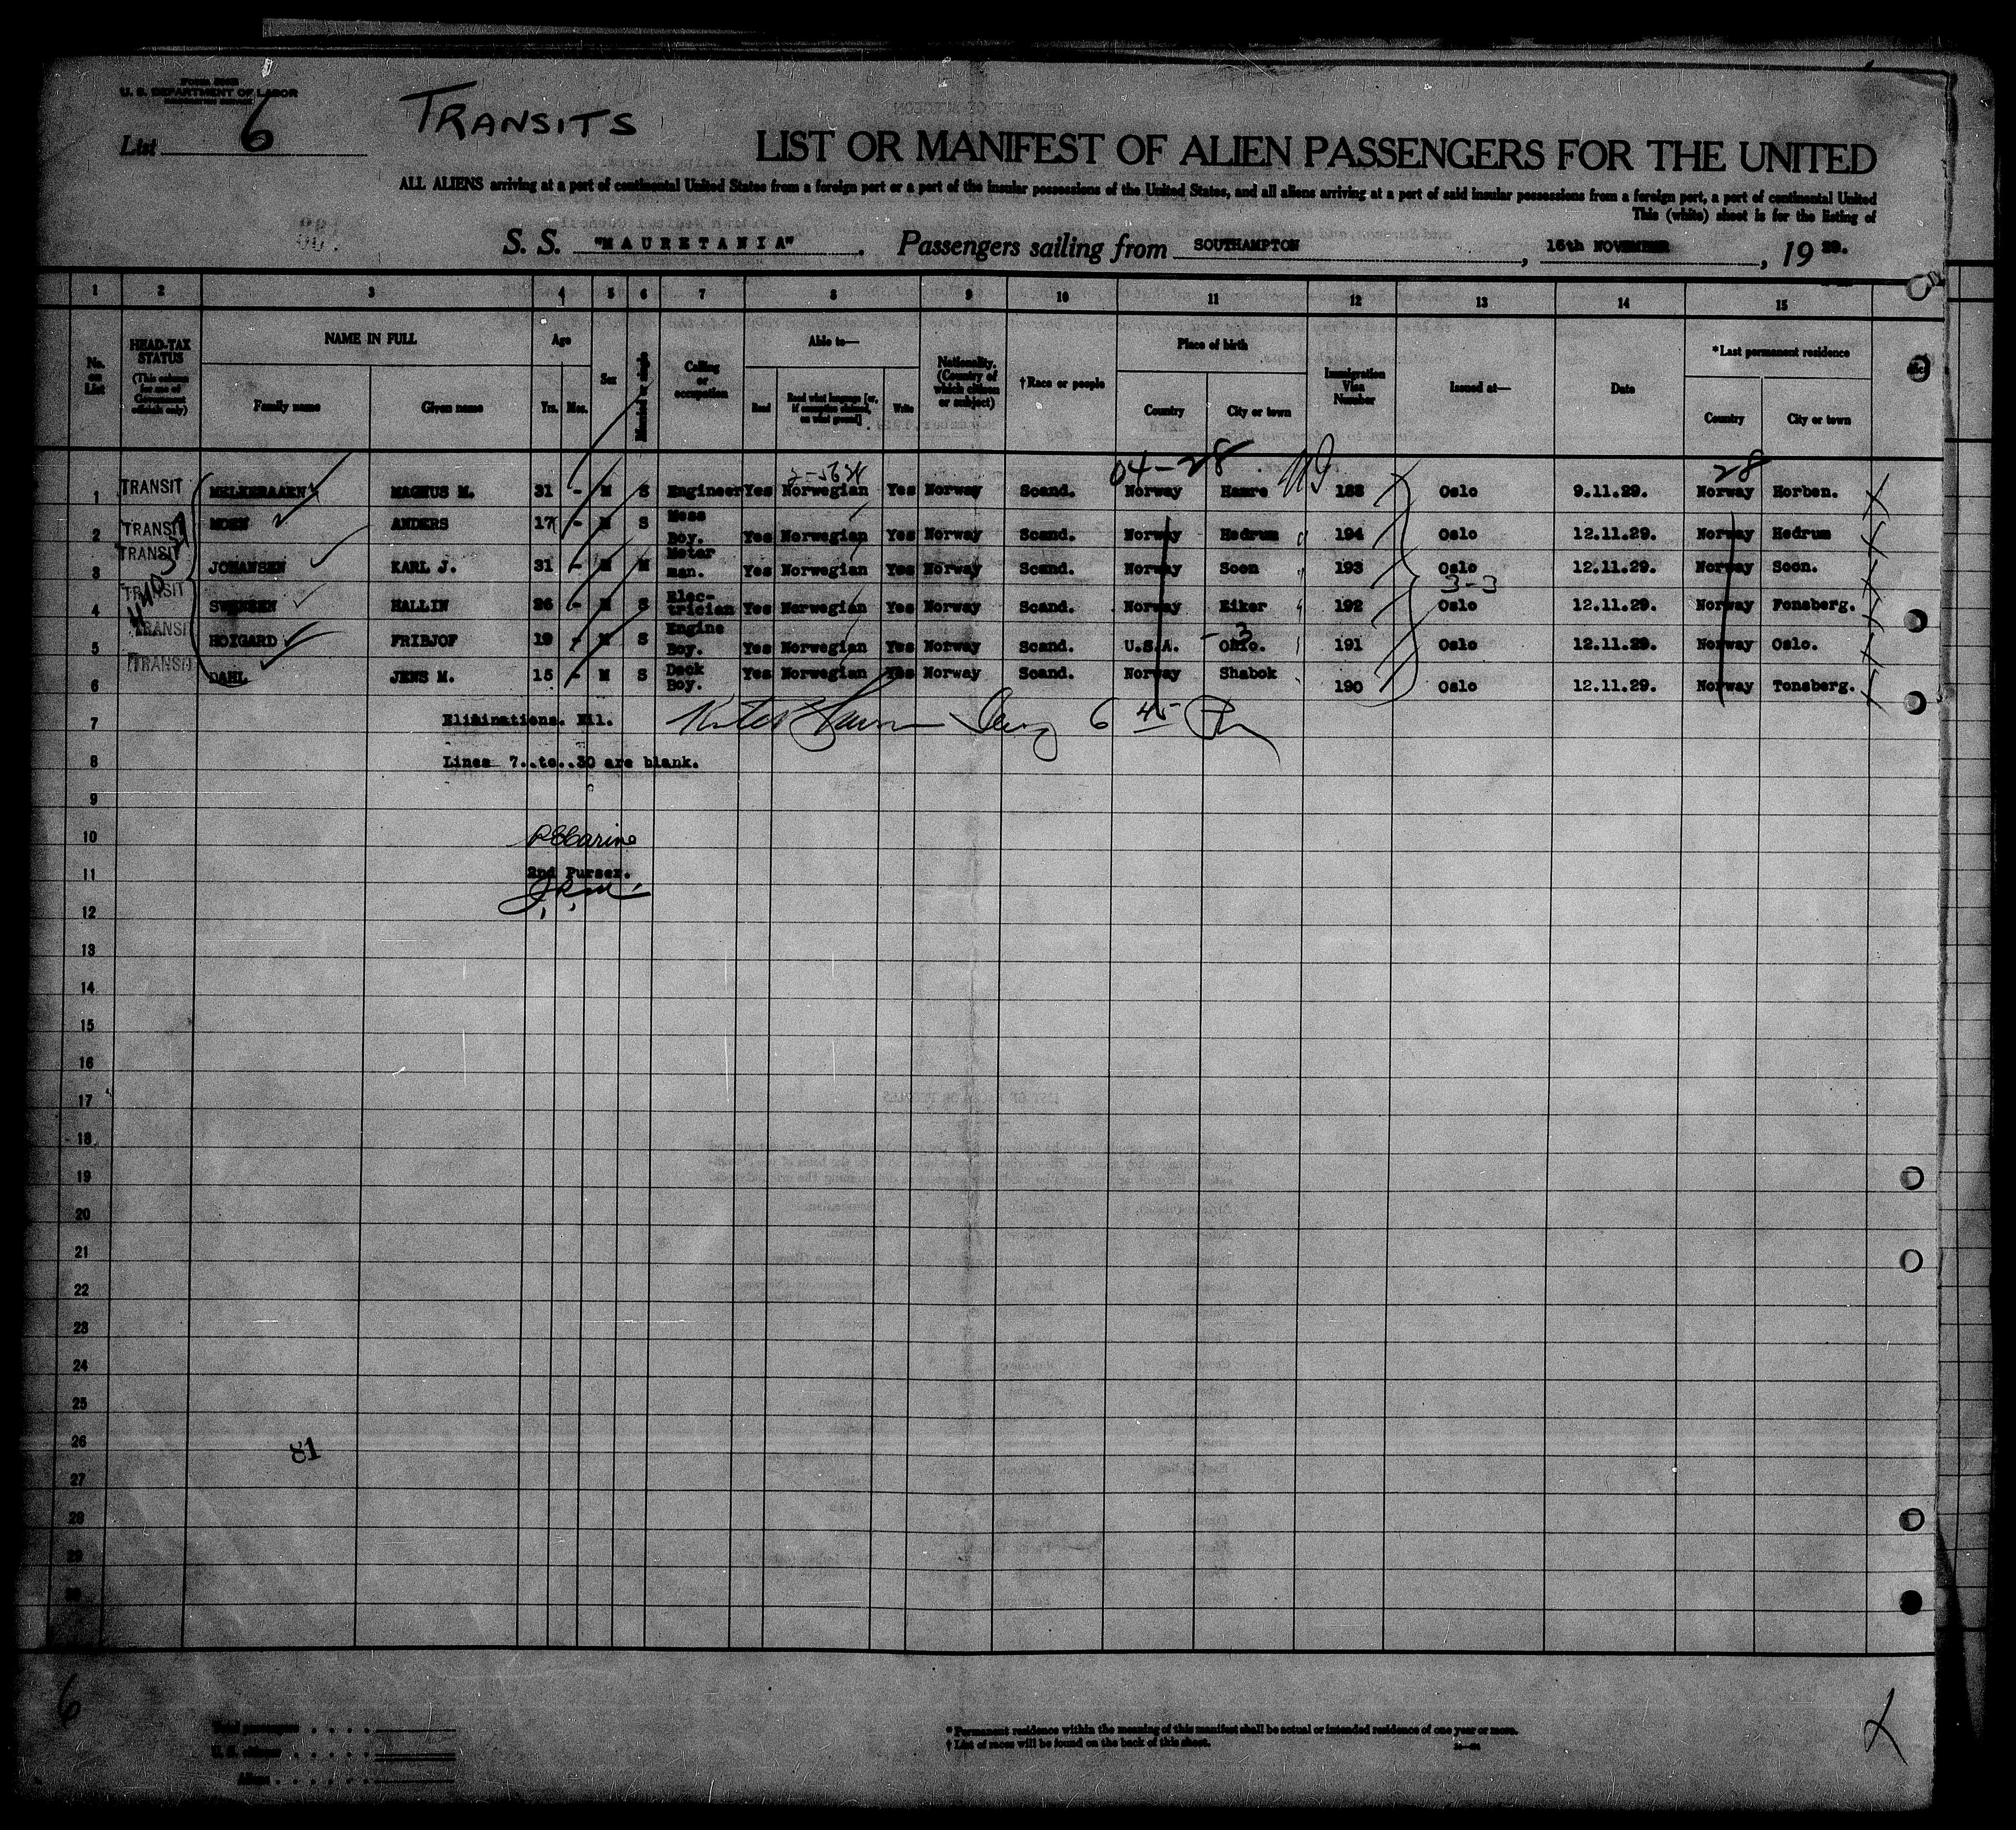 Form 500B
U. S. DEPARTMENT OF LABOR
List 6
TRANSITS
LIST OR MANIFEST OF ALIEN PASSENGERS FOR THE UNITED
ALL ALIENS arriving at a port of continental United States from a foreign port or a port of the insular possessions of the United States, and all aliens arriving at a port of said insular possessions from a foreign port, a port of continental United
This (white) sheet is for the listing of
S. S. "MAURETANIA". Passengers sailing from SOUTHAMPTON, 16th NOVEMBER, 19 29.
1 2 3 4 5 6 7 8 9 10 11 12 13 14 15
No. on List
HEAD-TAX STATUS (This column for use of Government officials only)
NAME IN FULL
Family name Given name
Age
Yrs. Mos.
Sex
Married or single
Calling or occupation
Able to—
Read Read what language [or, if exemption claimed, on what ground] Write
Nationality. (Country of which citizen or subject)
†Race or people
Place of birth
Country City or town
Immigration Visa Number
Issued at—
Date
*Last permanent residence
Country City or town
04-28 28
1 TRANSIT MELKERAAEN MAGNUS M. 31 - M S Engineer Yes Norwegian Yes Norway Scand. Norway Hamre 188 Oslo 9.11.29. Norway Horben.
2 TRANSIT MOEN ANDERS 17 - M S Mess Boy. Yes Norwegian Yes Norway Scand. Norway Hedrum 194 Oslo 12.11.29. Norway Hedrum
3 TRANSIT JOHANSEN KARL J. 31 - M M Motor man. Yes Norwegian Yes Norway Scand. Norway Soon 193 Oslo 12.11.29. Norway Soon.
3-3
4 TRANSIT SWENSEN HALLIN 26 - M S Elec-trician Yes Norwegian Yes Norway Scand. Norway Eiker 192 Oslo 12.11.29. Norway Fonsberg.
5 TRANSIT HOIGARD FRIBJOF 19 - M S Engine Boy. Yes Norwegian Yes Norway Scand. U.S.A. Ohio. 191 Oslo 12.11.29. Norway Oslo.
6 TRANSIT DAHL JENS M. 15 - M S Deck Boy. Yes Norwegian Yes Norway Scand. Norway Shabok 190 Oslo 12.11.29. Norway Tonsberg.
7 Eliminations. Nil. 6 45
8 Lines 7..to..30 are blank.
9
10
11 2nd Purser.
12
13
14
15
16
17
18
19
20
21
22
23
24
25
26 81
27
28
29
30
6
Total passengers
U. S. citizens
Aliens
* Permanent residence within the meaning of this manifest shall be actual or intended residence of one year or more.
† List of races will be found on the back of this sheet.